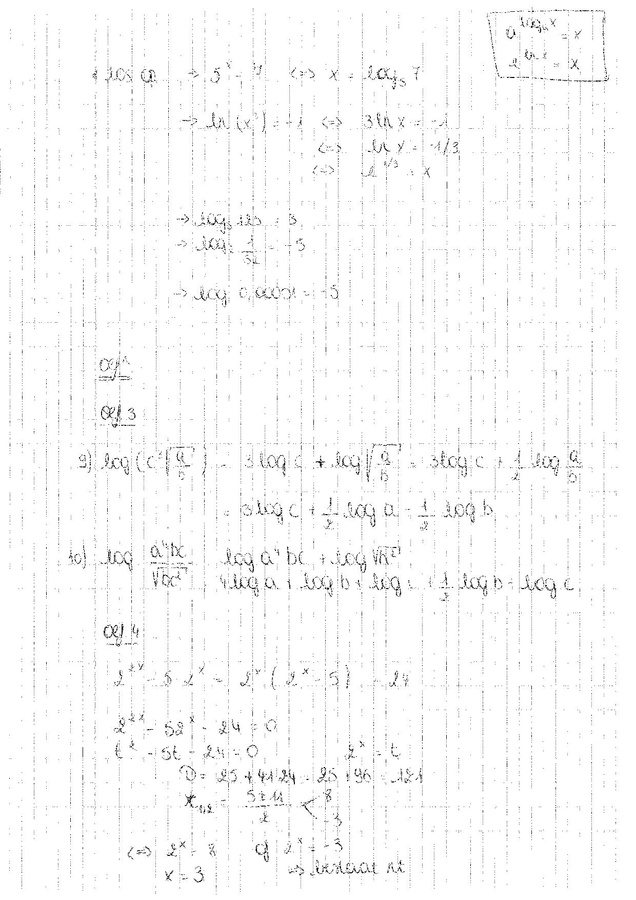 a^{log_a x} = x
e^{ln x} = x
→ 5^x = 7 ⟺ x = log_5 7
→ ln(x³) = -1 ⟺ 3ln x = -1
⟺ ln x = -1/3
⟺ e^{-1/3} = x
→ log_5 125 = 3
→ log_2 1/32 = -5
→ log 0,00001 = -5
Oef 1
Oef 3
9) log(c³√(a/b)) = 3log c + log√(a/b) = 3log c + 1/2 log a/b
= 3log c + 1/2 log a - 1/2 log b
10) log a⁴bc/√(bc²) log a⁴bc + log√bc²
4log a + log b + log c + 1/2 log b - log c
Oef 4
2^{2x} - 5 2^x = 2^x (2^x - 5) = 24
2^{2x} - 52^x - 24 = 0
t² - 5t - 24 = 0 2^x = t
D = 25 + 4·1·24 = 25 + 96 = 121
x_{1,2} = (5 ± 11)/2 < 8
-3
⟺ 2^x = 8 of 2^x = -3
x = 3 ⇒ bestaat nt